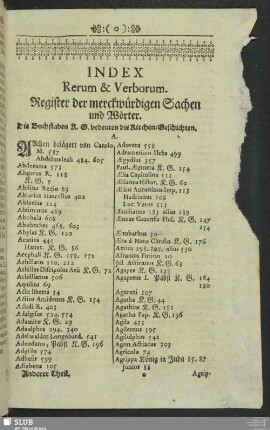 ( o )
INDEX
Rerum & Verborum.
Register der merckwürdigen Sachen
und Wörter.
Die Buchstaben K. G. bedeuten die Kirchen-Geschichten.
A.
Aachen belägert von Carolo
M. 587
Abdelmelech 484. 605
Abderama 573
Abgarus R. 118
K. G. 5
Abilius Regio 89
Ablavius Marcellus 402
Ablavius 214
Abimarus 489
Abubala 608
Abubecher 468. 603
Abylas K. G. 120
Acatius 441
Haeret. K. G. 86
Acephali K. G. 158. 172
Achillaeus 210. 212
Achillas Discipulus Arii K. G. 72
Achillianus 506
Aquileia 69
Acte liberta 34
Actius Armidenus K. G. 154
Acudi R. 405
Adalgisus 524. 554
Adamita K. G. 29
Adaulphus 294. 340
Adelwaldus Longobard. 541
Adeodatus, Pabst K. G. 196
Adgillo 574
Adhesir 599
Adiabena 105
Anderer Theil.
Adovera 558
Adrametium Urbs 499
Ægydius 357
Paul. Ægineta K. G. 154
Ælia Capitolina 121
Ælianus Histor. K. G. 62
Ælius Antoninus Imp. 123
Hadrianus 108
Luc. Verus 123
Æmilianus 183 alius 189
Æneas Gazensis Phil. K. G. 147
154
Ænobarbus
Æra à Nativ. Christi K. G. 176
Aetius 298. 302. alius 530
Africanus Fortius 20
Jul. Africanus K. G. 63
Agapes K. G. 123
Agapetus I. Pabst K. G. 164
180
Agareni 107
Agatha K. G. 44
Agathias K. G. 181
Agatho Pap. K. G. 196
Agila 433
Agilensus 395
Agilulphus 542
Agon Africanus 303
Agricola 74
Agrippa König in Juda 85. 87
Junior 88
a
Agrip-